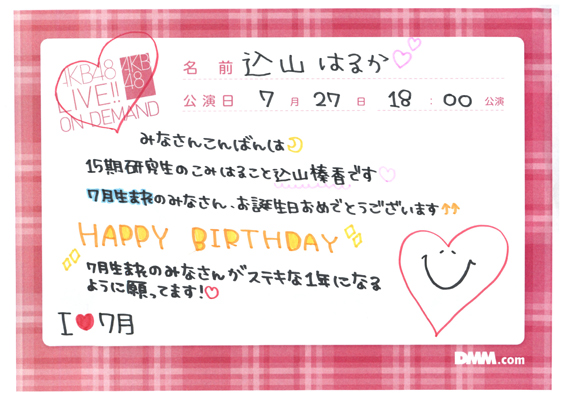 AKB48
LIVE!!
ON DEMAND
AKB
48
名 前 込山 はるか
公演日 7 月 27 日 18 : 00 公演
みなさんこんばんは
15期研究生のこみはること込山榛香です
7月生まれのみなさん、お誕生日おめでとうございます↑↑
HAPPY BIRTHDAY
7月生まれのみなさんがステキな1年になる
ように願ってます!♡
I ♥ 7月
DMM.com